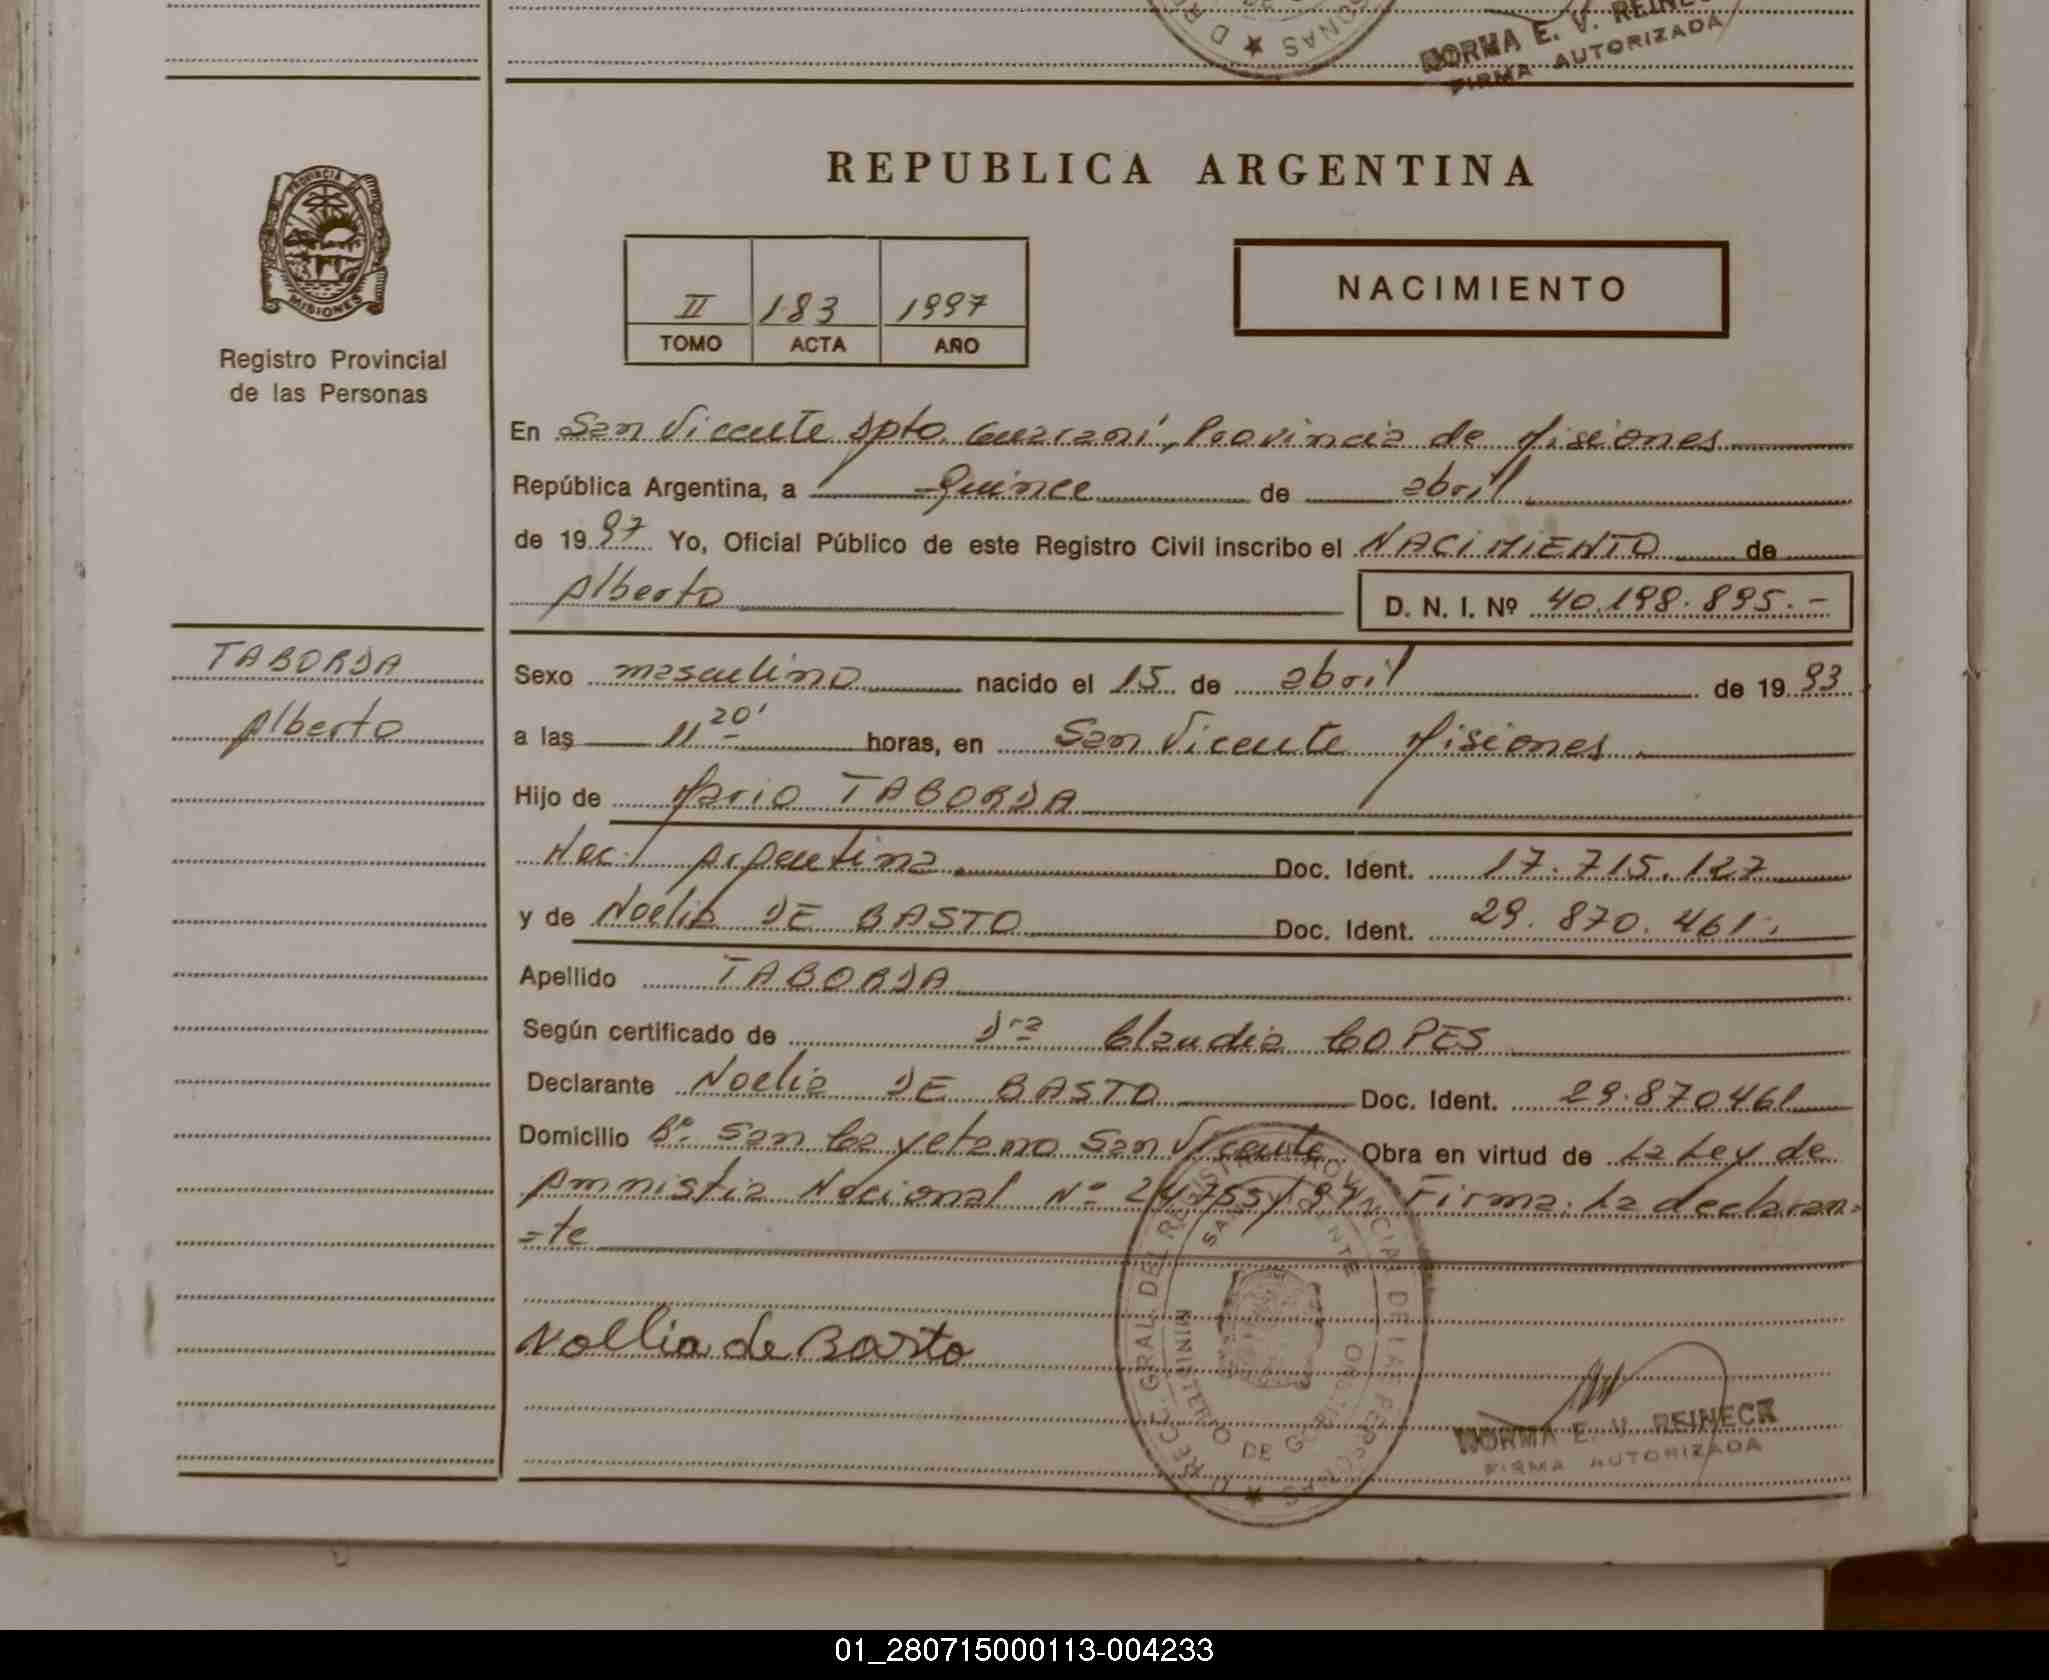 NORMA E. V. REINECK
FIRMA AUTORIZADA
PROVINCIA DE
MISIONES
Registro Provincial
de las Personas
REPUBLICA ARGENTINA
II 183 1997
TOMO ACTA AÑO
NACIMIENTO
En San Vicente Dpto. Guaraní, Provincia de Misiones
República Argentina, a Quince de abril
de 1997 Yo, Oficial Público de este Registro Civil inscribo el NACIMIENTO de
Alberto D. N. I. Nº 40.198.895.-
TABORDA
Alberto
Sexo masculino nacido el 15 de abril de 1993
a las 11 20' horas, en San Vicente Misiones
Hijo de Mario TABORDA
Nac. Argentina Doc. Ident. 17.715.127
y de Noelia DE BASTO Doc. Ident. 29.870.461.
Apellido TABORDA
Según certificado de Dra Claudia COPES
Declarante Noelia DE BASTO Doc. Ident. 29.870461
Domicilio Bº San Cayetano San Vicente Obra en virtud de La Ley de
Amnistia Nacional Nº 24755/97 Firma: La declaran=
=te
Noelia de Basto
DIRECC. GRAL. DEL REGISTRO PROVINCIAL DE LAS PERSONAS
SAN VICENTE
MINISTERIO DE GOBIERNO
NORMA E. V. REINECK
FIRMA AUTORIZADA
01_280715000113-004233